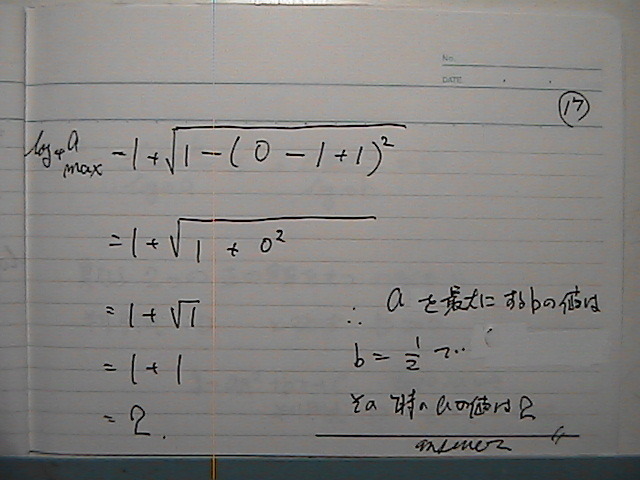 No.
DATE
17
log₄ a max = 1 + √(1 - (0 - 1 + 1)²)
= 1 + √(1 + 0²)
= 1 + √1
= 1 + 1
= 2.
∴ aを最大にするbの値は
b = 1/2 で
その時のaの値は2
answer